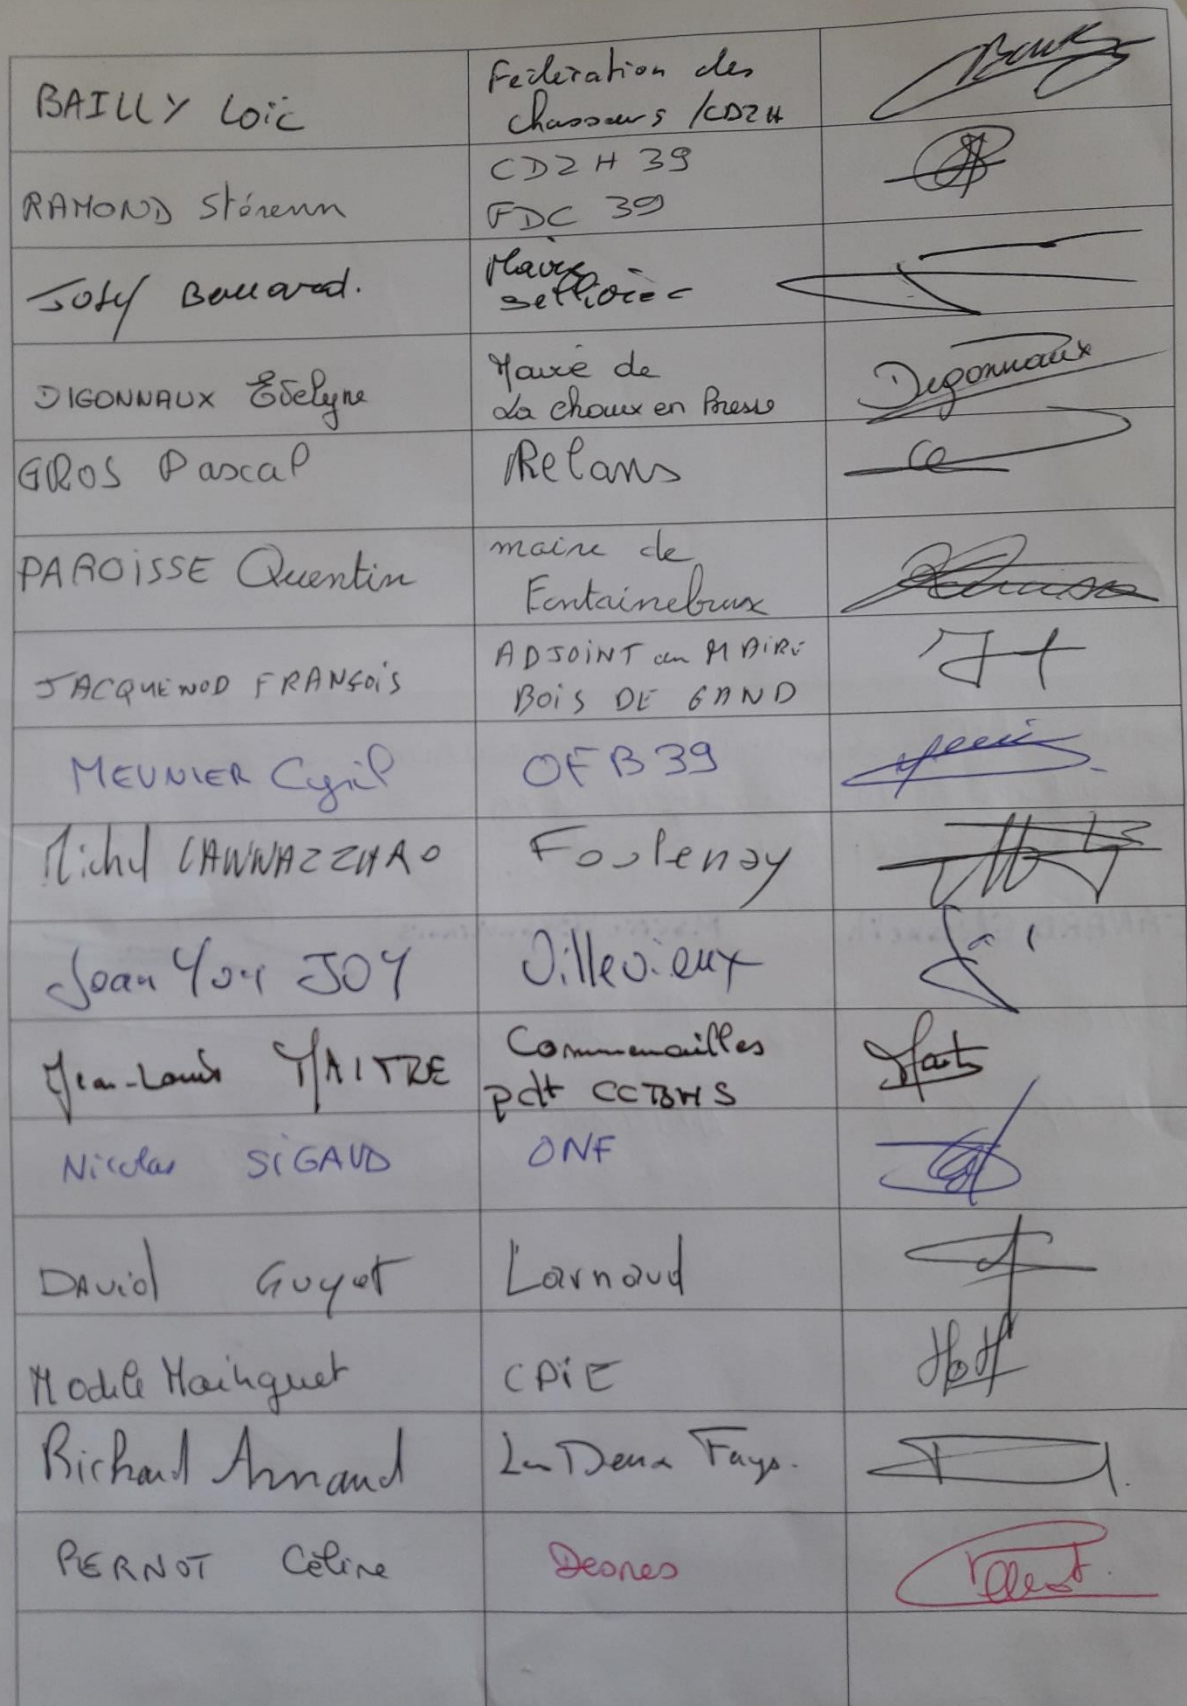 BAILLY Loïc
Fédération des
chasseurs /CD2H
RAMOND Stérenn
CD2H 39
FDC 39
Josy
Mairie
Sellières
DIGONNAUX Evelyne
Maire de
La Chaux en Bresse
Digonnaux
GROS Pascal
Relans
PAROISSE Quentin
maire de
Fontainebrux
JACQUENOD FRANÇOIS
ADJOINT au MAIRE
BOIS DE GAND
MEUNIER Cyril
OFB 39
Michel CANNAZZARO
Foulenay
Jean Yves JOY
Villevieux
Jean-Louis MAITRE
Commenailles
pdt CCBHS
Nicolas SIGAUD
ONF
David Guyot
Larnaud
Mainguet
CPIE
Richard Arnaud
Les Deux Fays.
PERNOT Céline
Desnes